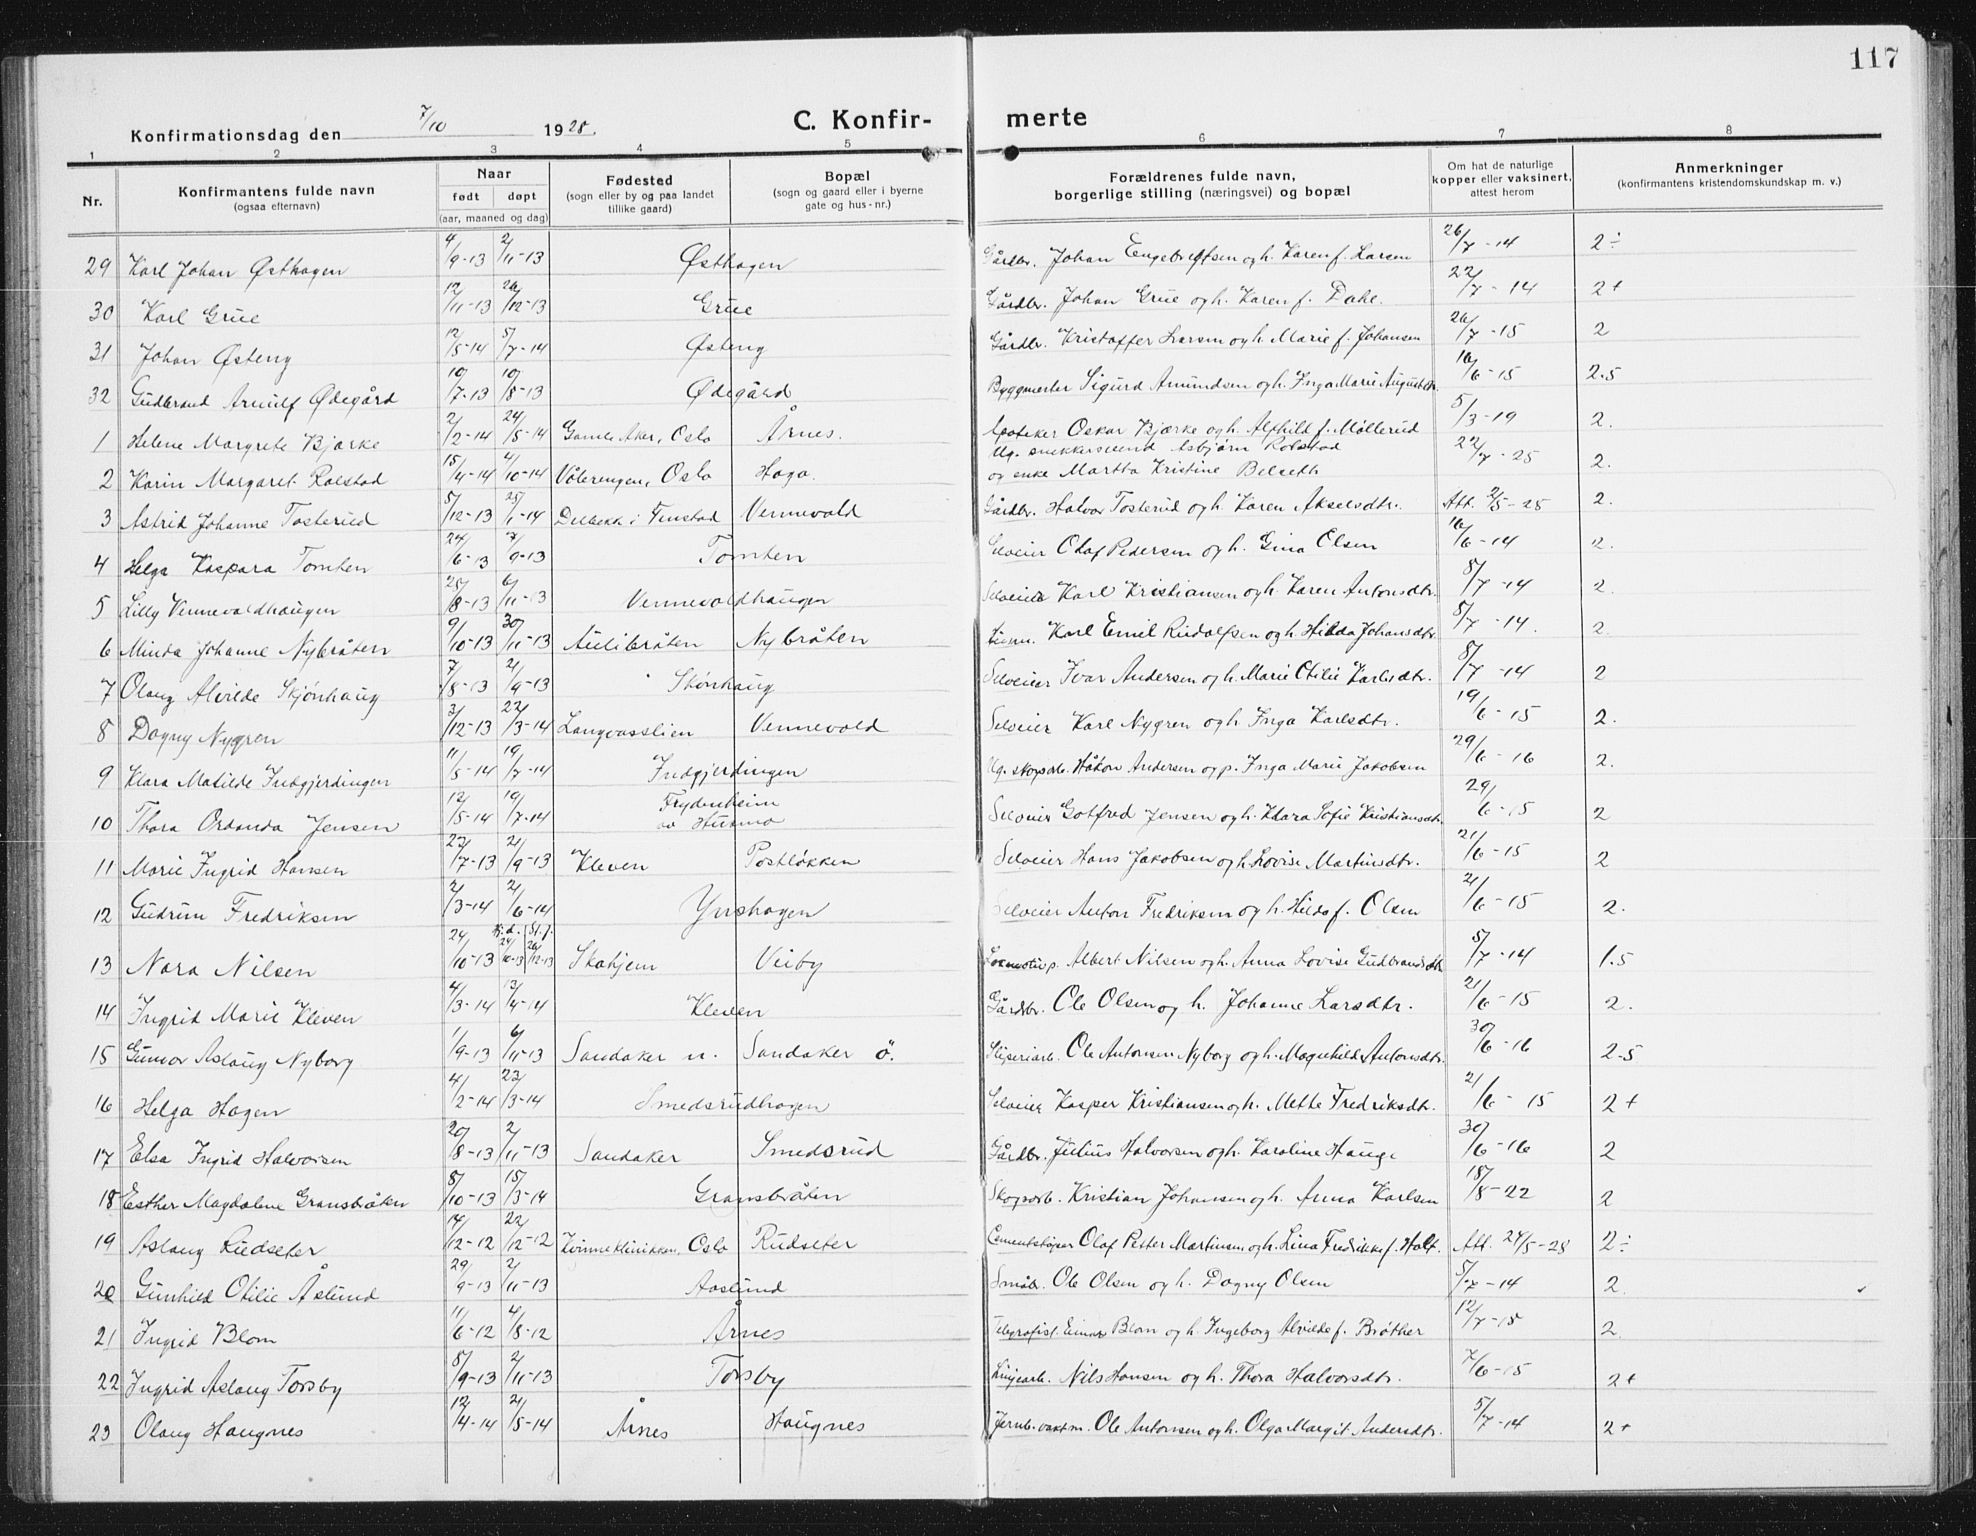 117
Konfirmationsdag den 7/10 1928. C. Konfir- merte
1 2 3 4 5 6 7 8
Nr. Konfirmantens fulde navn (ogsaa efternavn) Naar født døpt (aar, maaned og dag) Fødested (sogn eller by og paa landet tillike gaard) Bopæl (sogn og gaard eller i byerne gate og hus-nr.) Forældrenes fulde navn, borgerlige stilling (næringsvei) og bopæl Om hat de naturlige kopper eller vaksinert, attest herom Anmerkninger (konfirmantens kristendomskundskap m. v.)
29 Karl Johan Østhagen 4/9-13 2/11-13 Østhagen Gårdbr. Johan Engebretsen og h. Karen f. Larsen 26/7-14 2÷
30 Karl Grue 12/11-13 26/12-13 Grue Gårdbr. Johan Grue og h. Karen f. Dahl. 22/7-14 2+
31 Johan Østeng 12/5-14 5/7-14 Østeng Gårdbr. Kristoffer Larsen og h. Marie f. Johansen 26/7-15 2
32 Gudbrand Arnulf Ødegård 10/7-13 10/8-13 Ødegård Byggmester Sigurd Amundsen og h. Inga Marie Augustdtr. 16/6-15 2.5
1 Helene Margrete Bjørke 2/2-14 24/5-14 Gamle Aker, Oslo Årnes. Apoteker Oskar Bjørke og h. Alfhild f. Møllerud 5/3-19 2.
2 Karin Margaret Rolstad 15/4-14 4/10-14 Vålerengen, Oslo Haga. Ug. snekkersvend Asbjørn Rolstad og enke Martha Kristine Belseth 22/7-25 2.
3 Astrid Johanne Tosterud 5/12-13 25/1-14 Delbekk i Fenstad Vennevold Gårdbr. Halvor Tosterud og h. Karen Akselsdtr. Att. 2/5-28 2.
4 Helga Kaspara Tomten 24/6-13 7/9-13 Tomten Selveier Olaf Pedersen og h. Gina Olsen 16/6-14 2.
5 Lilly Vennevoldhaugen 25/8-13 6/11-13 Vennevoldhaugen Selveier Karl Kristiansen og h. Karen Antonsdtr. 5/7-14 2.
6 Minda Johanne Nybråten 9/10-13 30/11-13 Aulibråten Nybråten Karl Emil Rudolfsen og h. Hilda Johansdtr. 5/7-14. 2.
7 Olaug Alvilde Skjønhaug 7/8-13 21/9-13 Skønhaug Selveier Ivar Andersen og h. Marie Otilie Karlsdtr. 8/7-14 2
8 Dagny Nygren 3/12-13 22/3-14 Langvasslien Vennevold Selveier Karl Nygren og h. Inga Karlsdtr. 19/6-15 2.
9 Klara Matilde Indgjerdingen 11/5-14 19/7-14 Indgjerdingen Ug. skogsarb. Håkon Andersen og p. Inga Marie Jakobsen 29/6-16 2.
10 Thora Ordanda Jensen 12/5-14 19/7-14 Frydenheim av Husmo Selveier Gotfred Jensen og h. Klara Sofie Kristiansdtr. 29/6-15 2
11 Marie Ingrid Hansen 22/7-13 21/9-13 Kleven Postløkken Selveier Hans Jakobsen og h. Lovise Martinsdtr. 21/6-15 2
12 Gudrun Fredriksen 2/3-14 21/6-14 Yrishagen Selveier Anton Fredriksen og h. Hilda f. Olsen 21/6-15 2.
13 Nora Nilsen 24/10-13 Hj.d. 24/10-13 St.f. 26/12-13 Skahjem Veiby Lokomotivp. Albert Nilsen og h. Anna Lovise Gudbrandsdtr. 5/7-14 1.5
14 Ingrid Marie Kleven 4/3-14 13/4-14 Kleven Gårdbr. Ole Olsen og h. Johanne Larsdtr. 21/6-15 2.
15 Gunvor Aslaug Nyborg 1/9-13 6/11-13 Sandaker n. Sandaker ö. Ole Antonsen Nyborg og h. Magnhild Antonsdtr. 30/6-16 2.5
16 Helga Hagen 4/2-14 22/3-14 Smedsrudhagen Selveier Kasper Kristiansen og h. Mette Fredriksdtr. 21/6-15 2+
17 Elsa Ingrid Halvorsen 20/8-13 2/11-13 Sandaker Smedsrud Gårdbr. Julius Halvorsen og h. Karoline Hauge 30/6-16 2
18 Esther Magdalene Gransbråten 8/10-13 15/3-14 Gransbråten Skogsarb. Kristian Johansen og h. Anna Karlsen 18/8-22 2
19 Aslaug Rudseter 14/12-12 22/12-12 Kvinneklinikken, Oslo Rudseter Cementstøper Olaf Petter Martinsen og h. Lina Fredrikke f. Holt. Att. 24/5-28 2÷
20 Gunhild Otilie Åslund 29/9-13 2/11-13 Aaslund Småbr. Ole Olsen og h. Dagny Olsen 5/7-14 2.
21 Ingrid Blom 11/6-12 4/8-12 Årnes Telegrafist Einar Blom og h. Ingeborg Alvilde f. Brøther 12/7-15 2.
22 Ingrid Aslaug Torsby 8/9-13 2/11-13 Torsby Linjearb. Nils Hansen og h. Thora Halvorsdtr. 7/6-15 2+
23 Olaug Haugnes 12/4-14 21/5-14 Årnes Haugnes Jernb. vaktm. Ole Antonsen og h. Olga Margit Andersdtr. 5/7-14 2+